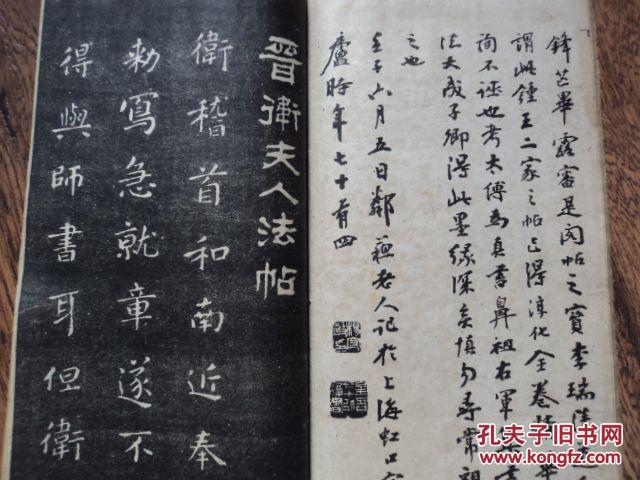 鋒芒畢露審是閣帖之寶李瑞清
謂此鍾王二家之帖已得淳化全卷
詢不誣也考太傅為真書鼻祖右軍
法大成子卿得此墨緣深矣慎勿尋常視
之也
壬子六月五日鄰蘇老人記於上海虹口
廬時年七十有四
晉衛夫人法帖
衛稽首和南近奉
勅寫急就章遂不
得與師書耳但衛
孔夫子旧书网
www.kongfz.com